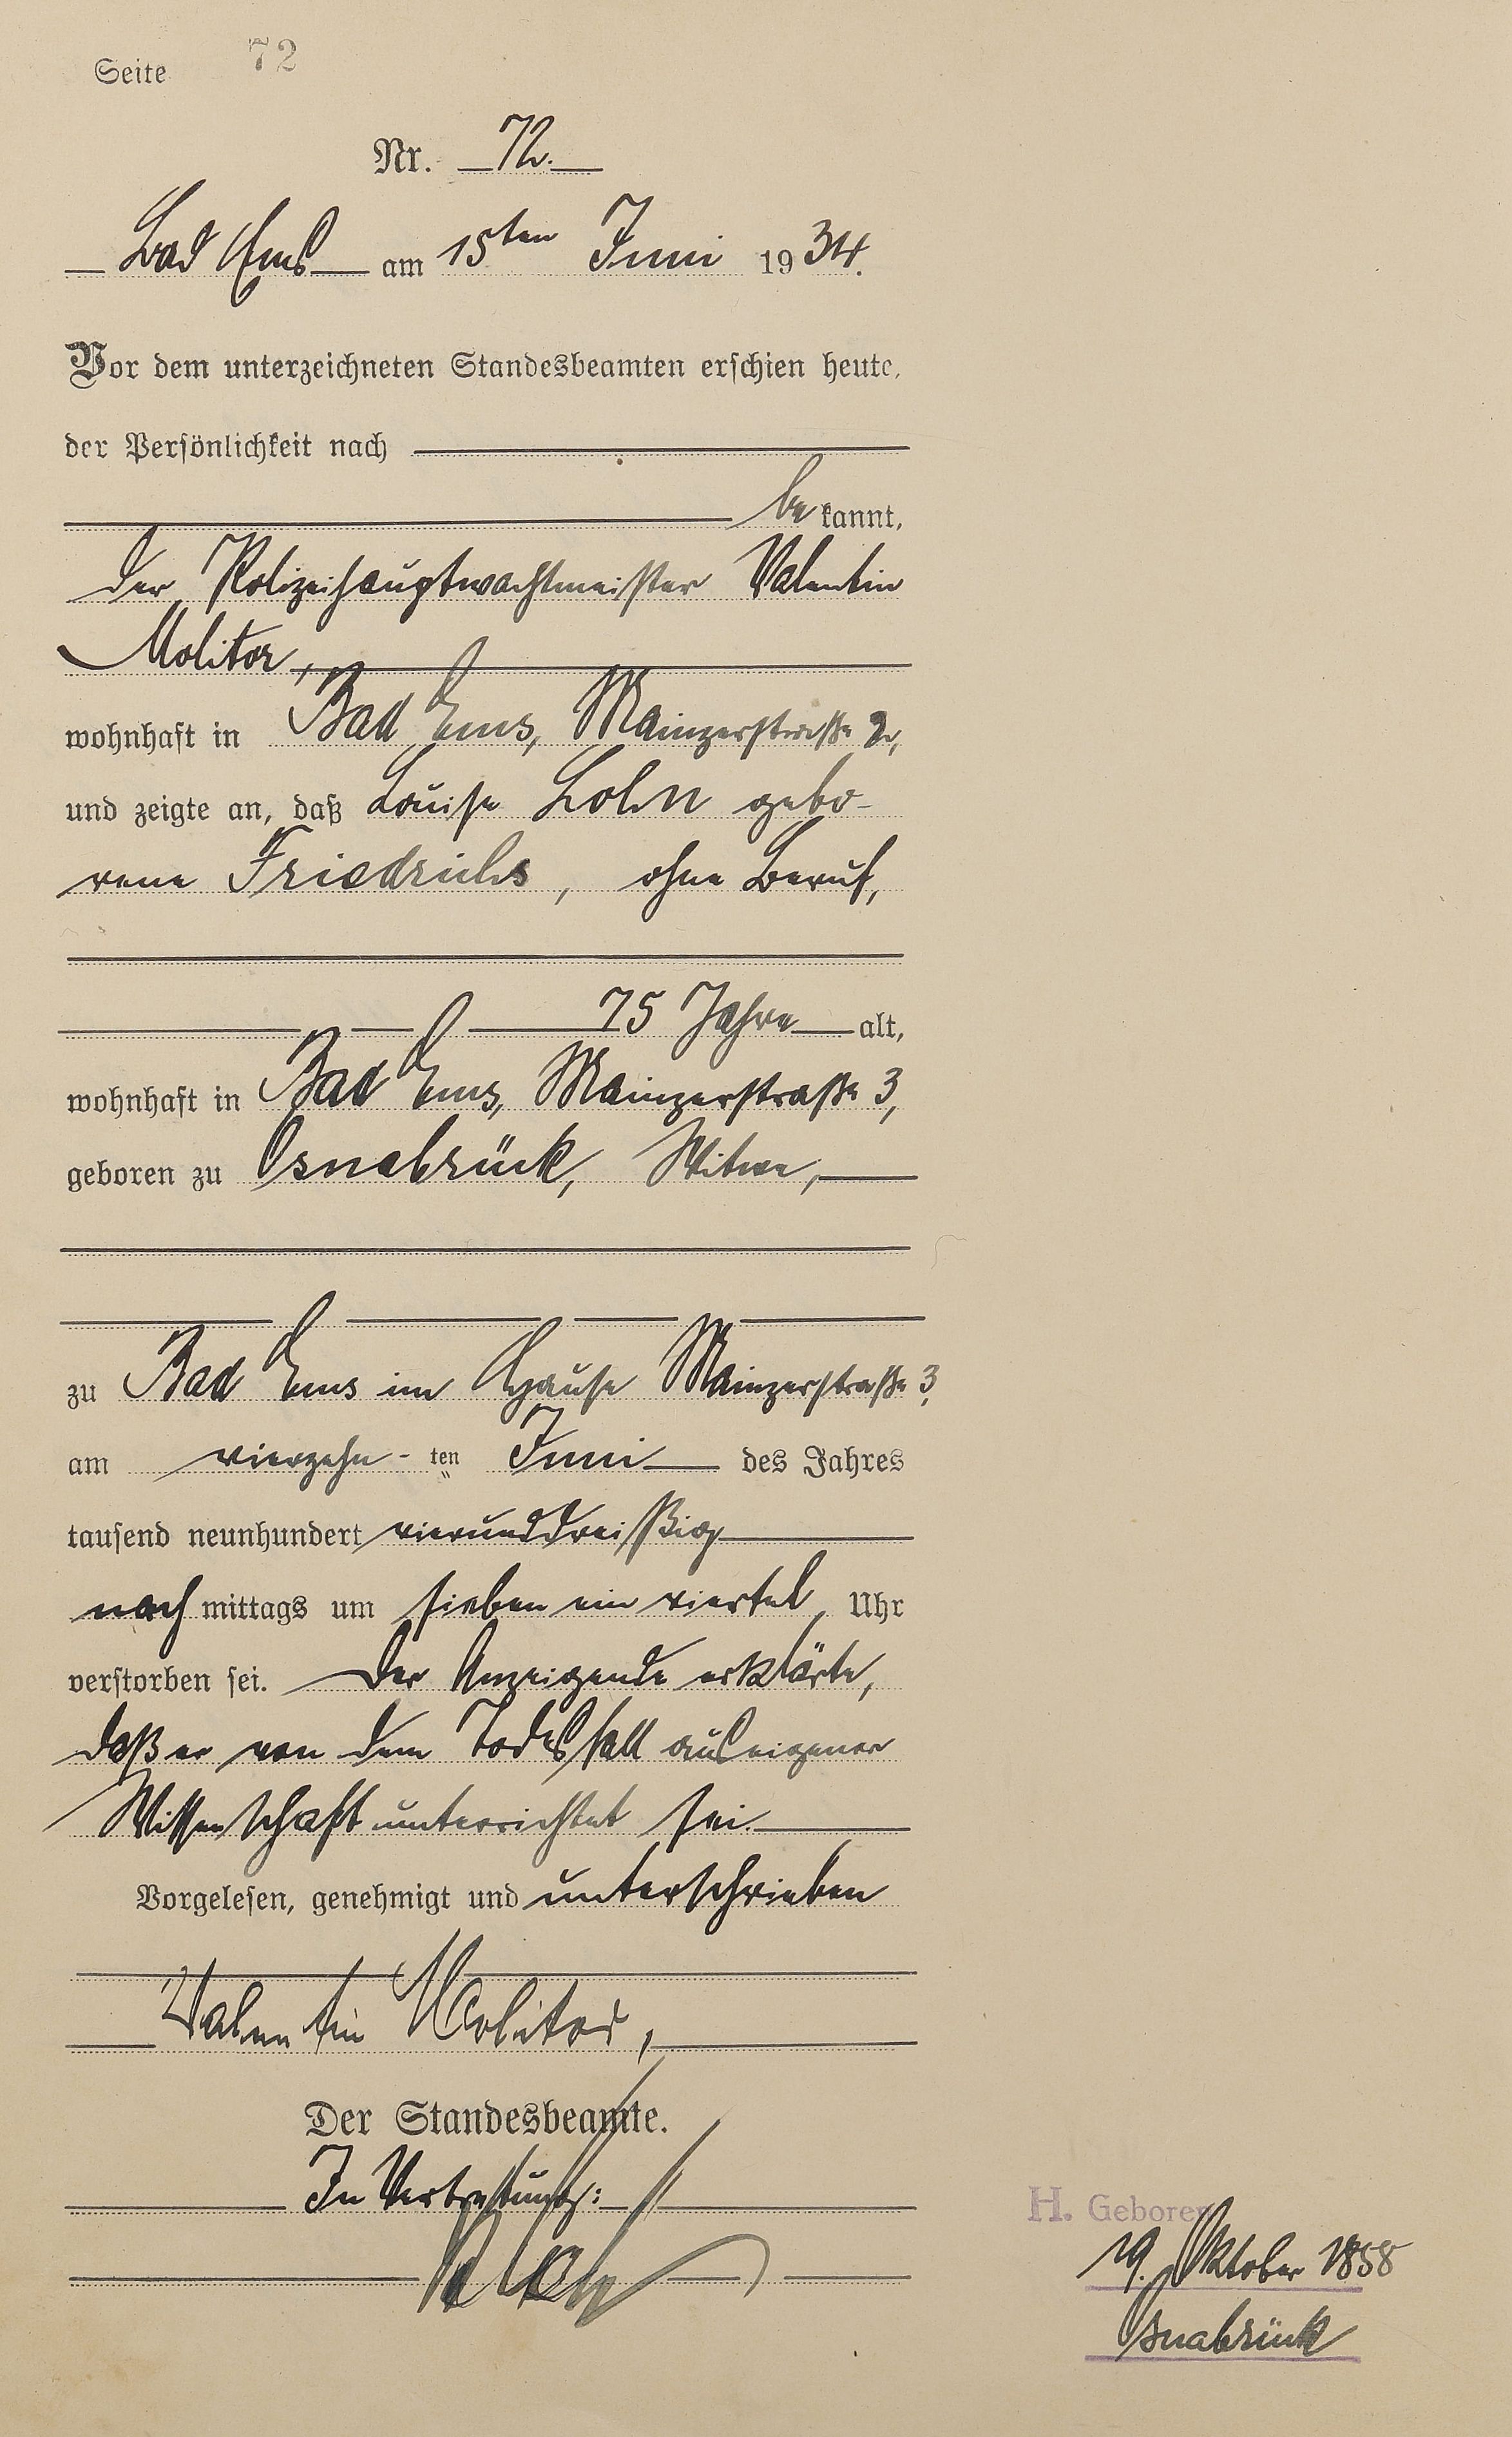 Seite 72
Nr. 72.
Bad Ems am 15ten Juni 1934.
Vor dem unterzeichneten Standesbeamten erschien heute,
der Persönlichkeit nach
be kannt,
der Polizeihauptwachtmeister Valentin
Molitor,
wohnhaft in Bad Ems, Mainzerstraße 2,
und zeigte an, daß Louise Lohn gebo-
rene Friedrichs, ohne Beruf,
75 Jahre alt,
wohnhaft in Bad Ems, Mainzerstraße 3,
geboren zu Osnabrück, Witwe,
zu Bad Ems im Hause Mainzerstraße 3,
am vierzehn-ten Juni des Jahres
tausend neunhundert vierunddreißig
nach mittags um sieben ein viertel Uhr
verstorben sei. Der Anzeigende erklärte,
daß er von dem Todesfall aus eigener
Wissenschaft unterrichtet sei.
Vorgelesen, genehmigt und unterschrieben
Valentin Molitor,
Der Standesbeamte.
In Vertretung:
H. Geboren
19. Oktober 1858
Osnabrück